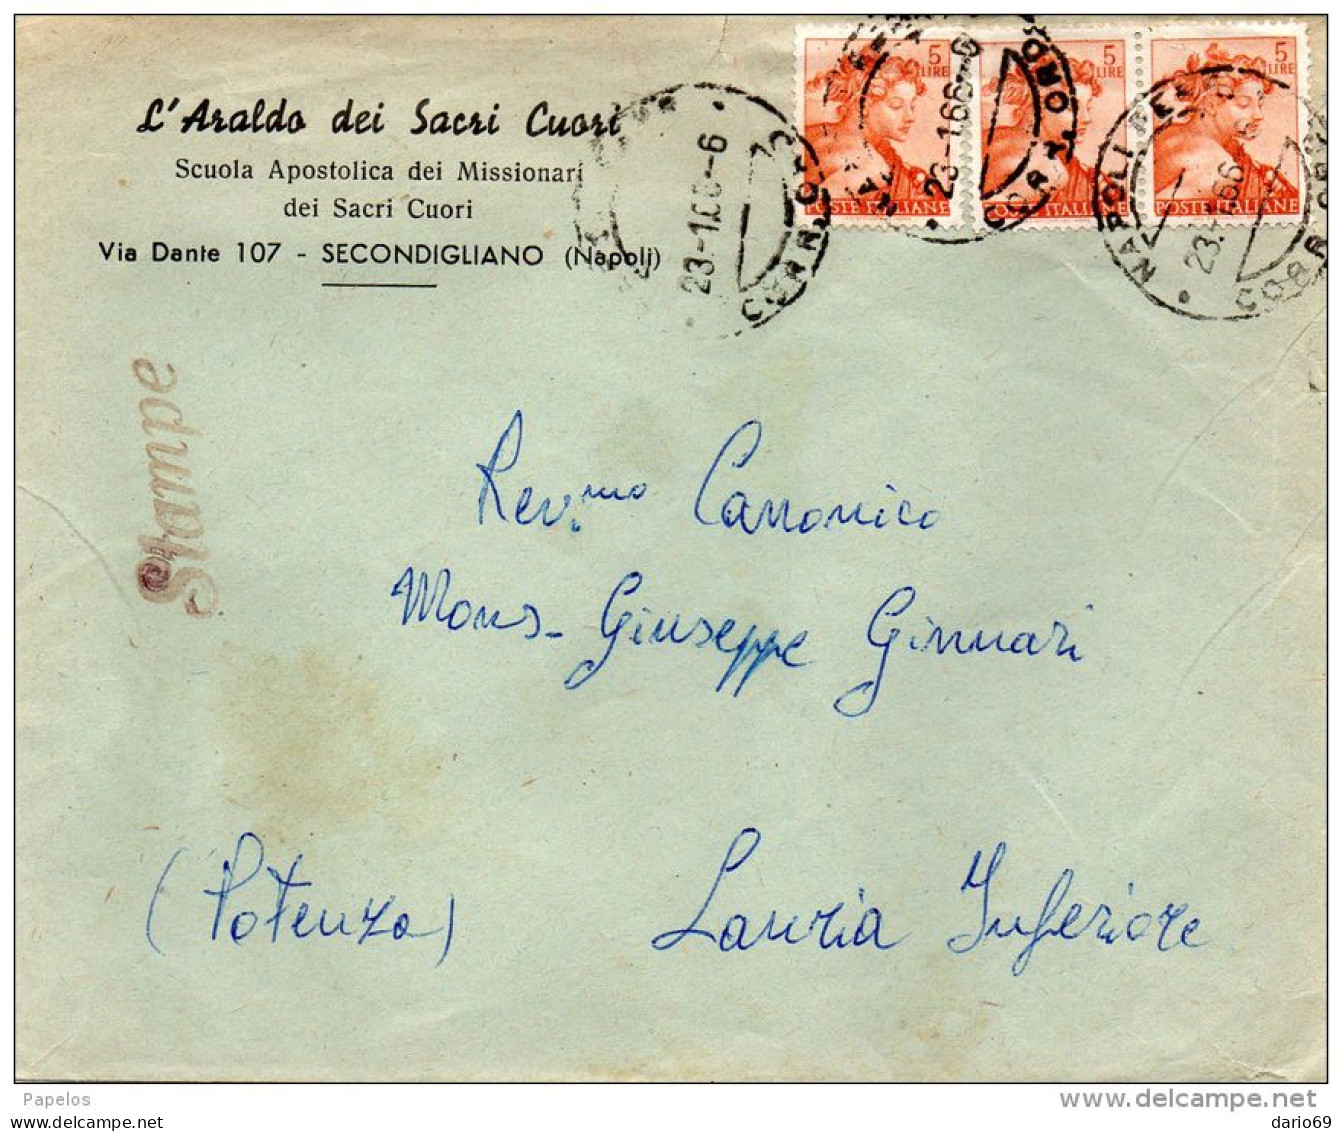 L'Araldo dei Sacri Cuori
Scuola Apostolica dei Missionari
dei Sacri Cuori
Via Dante 107 - SECONDIGLIANO (Napoli)
5 LIRE
5 LIRE
5 LIRE
POSTE ITALIANE
POSTE ITALIANE
POSTE ITALIANE
23.-1.66-6
CORR.
23-1.66-6
CORR.
NAPOLI FERR.
23.-1.66
CORR.
Stampe
Rev.mo Canonico
Mons- Giuseppe Ginnari
(Potenza) Lauria Inferiore
Papelos
www.delcampe.net
dario69